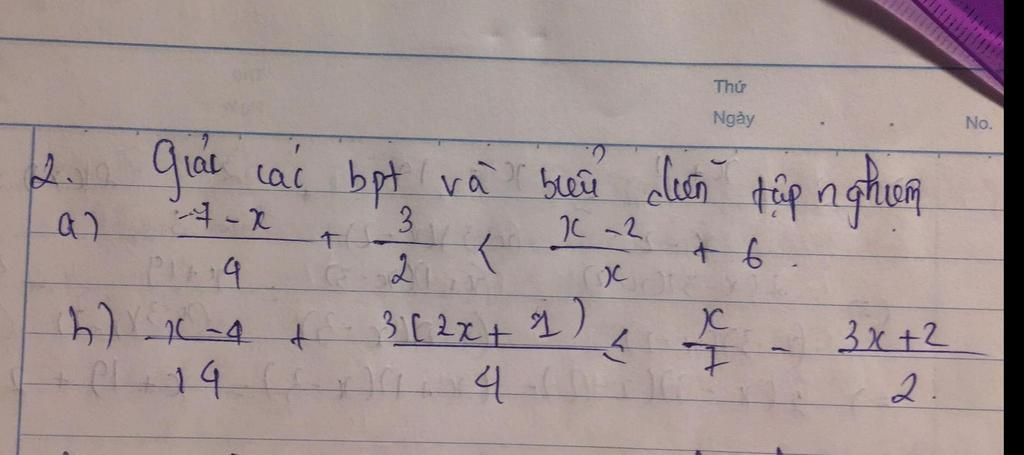 Thứ
Ngày No.
2. Giải các bpt và biểu diễn tập nghiệm
a) \frac{-7-x}{4} + \frac{3}{2} < \frac{x-2}{x} + 6.
b) \frac{x-4}{14} + \frac{3(2x+1)}{4} ≤ \frac{x}{7} - \frac{3x+2}{2}.